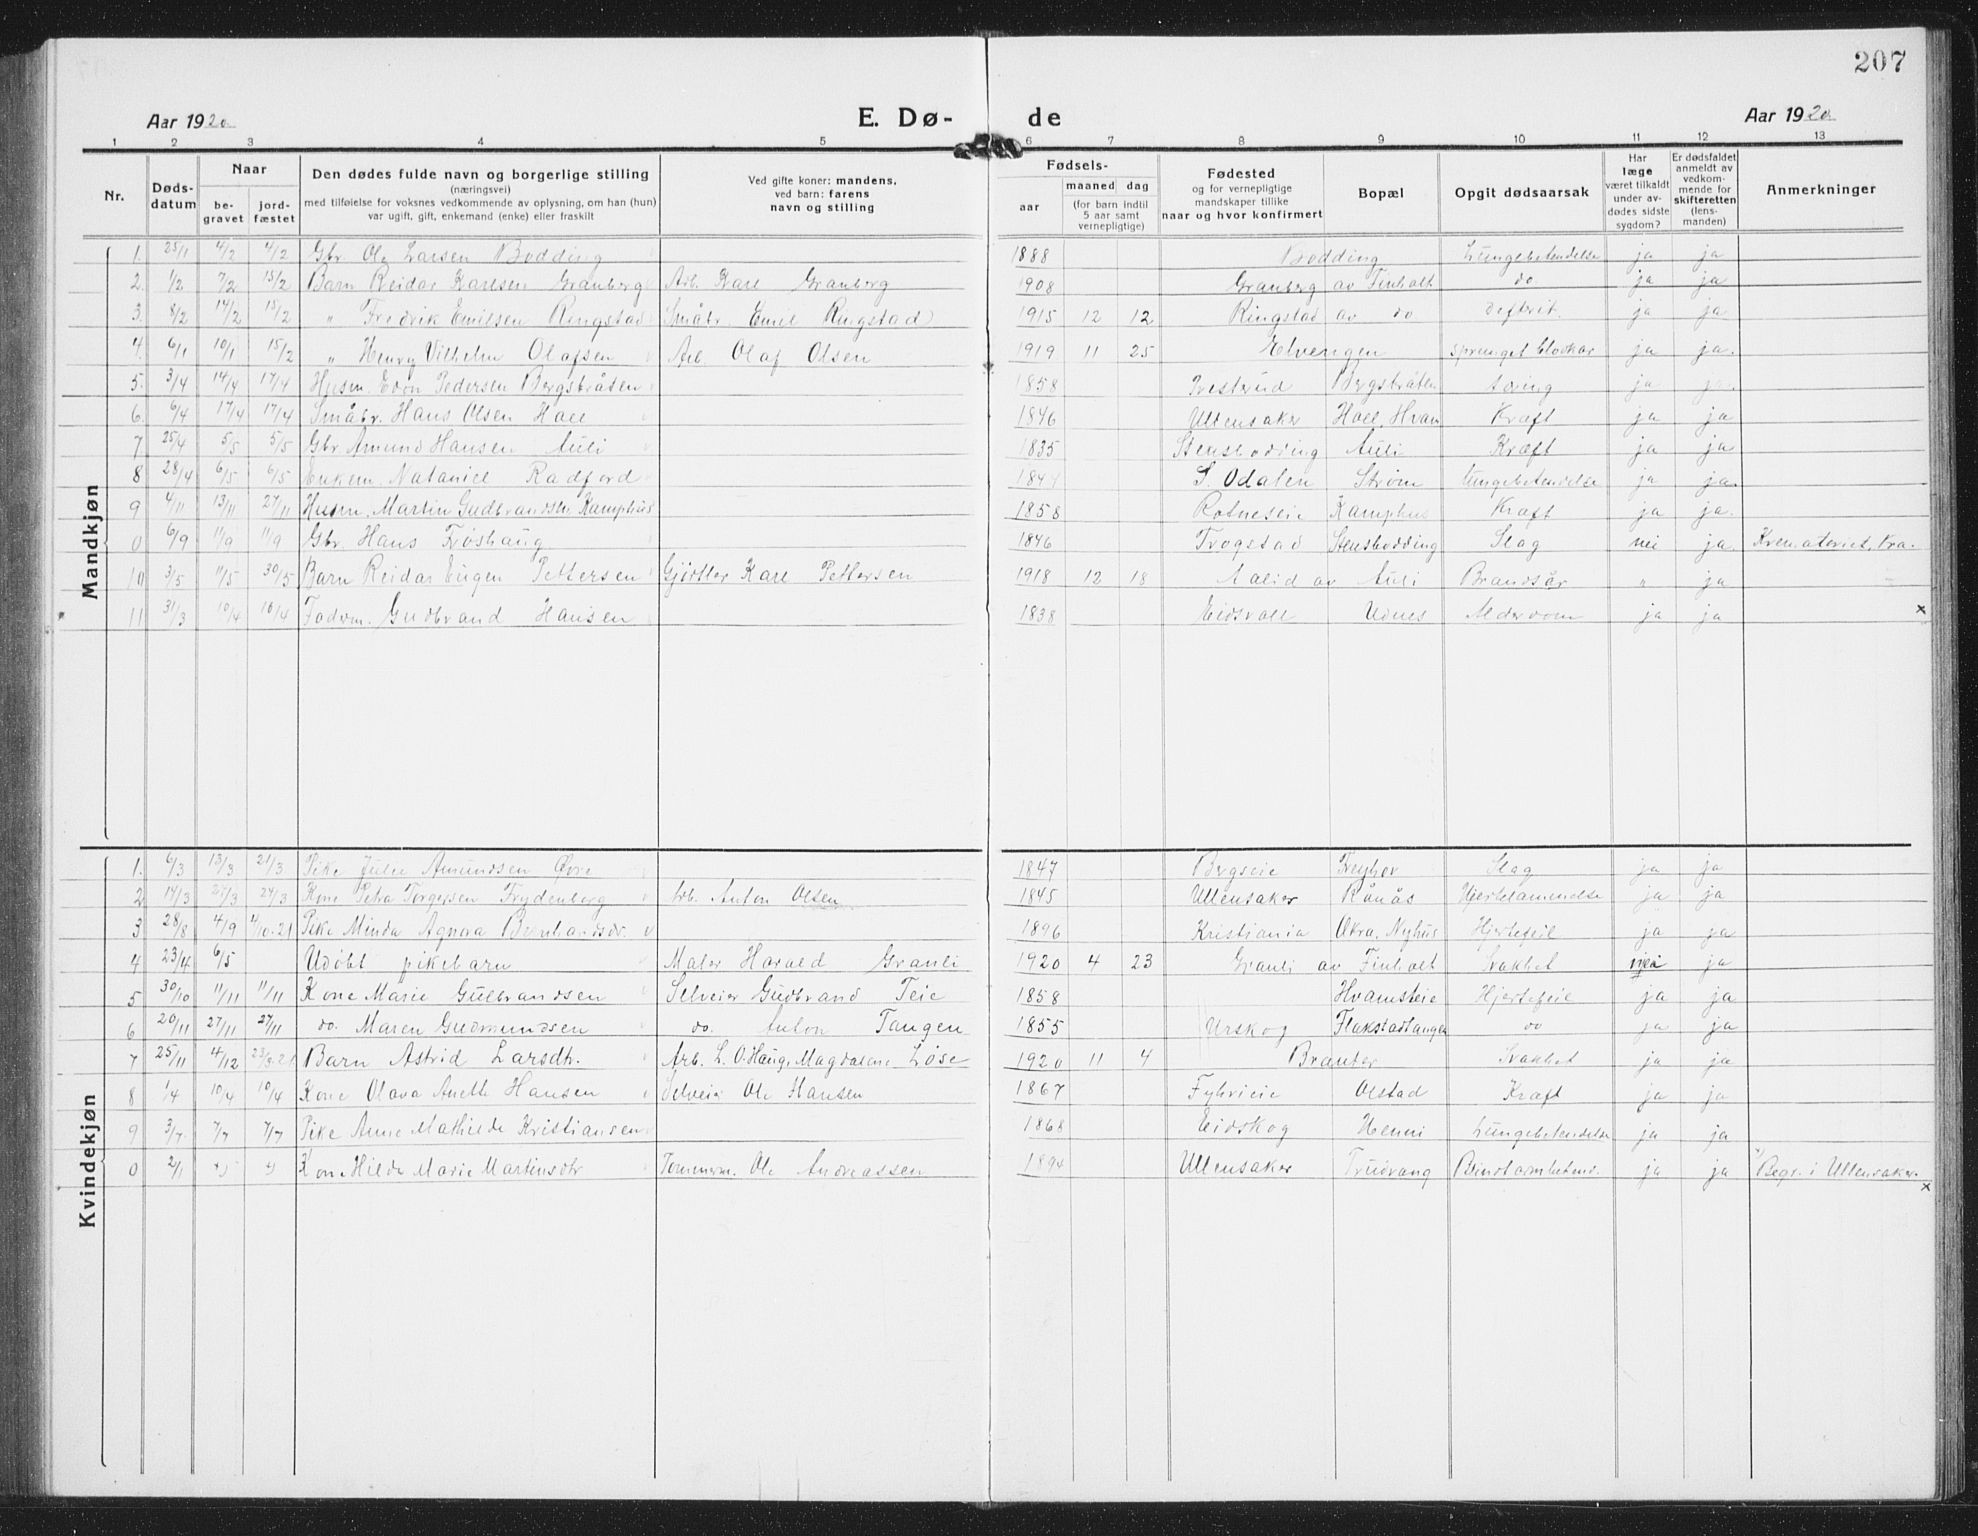 207
Aar 1920 E. Dø- de Aar 1920
1 2 3 4 5 6 7 8 9 10 11 12 13
Nr. Døds-datum Naar be-gravet jord-fæstet Den dødes fulde navn og borgerlige stilling (næringsvei) med tilføielse for voksnes vedkommende av oplysning, om han (hun) var ugift, gift, enkemand (enke) eller fraskilt Ved gifte koner: mandens, ved barn: farens navn og stilling Fødsels- aar maaned dag (for barn indtil 5 aar samt vernepligtige) Fødested og for vernepligtige mandskaper tillike naar og hvor konfirmert Bopæl Opgit dødsaarsak Har læge været tilkaldt under av-dødes sidste sygdom? Er dødsfaldet anmeldt av vedkom-mende for skifteretten (lens-manden) Anmerkninger
Mandkjøn
1. 25/1 4/2 4/2 Gbr. Ole Larsen Bødding 1888 Bødding Lungebetendelse ja ja
2. 1/2 7/2 15/2 Barn Reidar Karlsen Granberg Arb. Karl Granberg 1908 Granberg av Finholt do ja ja
3. 8/2 14/2 15/2 " Fredrik Emilsen Ringstad Småbr. Emil Ringstad 1915 12 12 Ringstad av do deftrit. ja ja
4. 6/1 10/1 15/2 " Henry Vilhelm Olafsen Arb. Olaf Olsen 1919 11 25 Elvengen sprunget blokar ja ja.
5. 3/4 14/4 17/4 Husm. Even Pedersen Bergstråten 1858 Prestrud Bergstråten tæring ja ja.
6. 6/4 17/4 17/4 Småbr. Hans Olsen Holl 1846 Ullensaker Holl, Hvam Kræft ja ja
7 25/4 5/5 5/5 Gbr Amund Hansen Auli 1835 Stensbødding Auli Kræft ja ja
8 28/4 6/5 6/5 Enkem. Nataniel Radford S. Odalen Strøm Lungebetendelse ja ja.
9 4/11 13/11 27/11 Husm. Martin Gudbrandsen Kamphus 1858 Rotneseie Kamphus Kræft ja ja.
0 6/9 11/9 11/9 Gbr. Hans Frøshaug 1846 Trøgstad Stensbødding Slag nei ja Krematoriet, Kra.
10 3/5 11/5 30/5 Barn Reidar Eugen Pettersen Gjørtler Karl Pettersen 1918 12 18 Aalid av Auli Brandsår " ja
11 31/3 10/4 16/4 Føderm. Gudbrand Hansen 1838 Eidsvoll Udnes Alderdom ja ja x
Kvindekjøn
1. 6/3 13/3 21/3 Pike Julie Amundsen Øvre 1847 Bergseie Frejhov Slag ja ja
2 14/3 24/3 Kone Petra Torgersen Frydenberg Arb. Anton Olsen 1845 Ullensaker Rånås Hjertelammelse ja ja
3 28/8 4/9 4/10-21 Pike Minda Agnora Bernhardsdr. 1896 Kristiania Økra, Nyhus Hjertefeil ja ja
4 23/4 6/5 Udøbt pikebarn Maler Harald Granli 1920 4 23 Granli av Finholt Svakhet nei ja
5 30/10 11/11 11/11 Kone Marie Gulbrandsen Selveier Gudbrand Teie 1858 Hvamsteie Hjertefeil ja ja
6 20/11 27/11 27/11 do. Maren Gudmundsen do. Anton Tangen 1855 Urskog Flakstadtangen do ja ja
7 25/11 4/12 Barn Astrid Larsdtr. Arb. L. O. Haug, Magdalene Løse 1920 11 4 Brænter Svakhet ja ja
8 1/4 10/4 10/4 Kone Olava Anette Hansen Selveier Ole Hansen 1867 Fyhrieie Olstad Kræft ja ja
9 3/7 7/7 7/7 Pike Anne Mathilde Kristiansen 1868 Eidskog Henni Lungebetendelse ja ja
0 2/1 Kone Hilda Marie Martinsdtr Tømmerm. Ole Andreassen 1894 Ullensaker Trudvang ja ja Begr. i Ullensaker. x